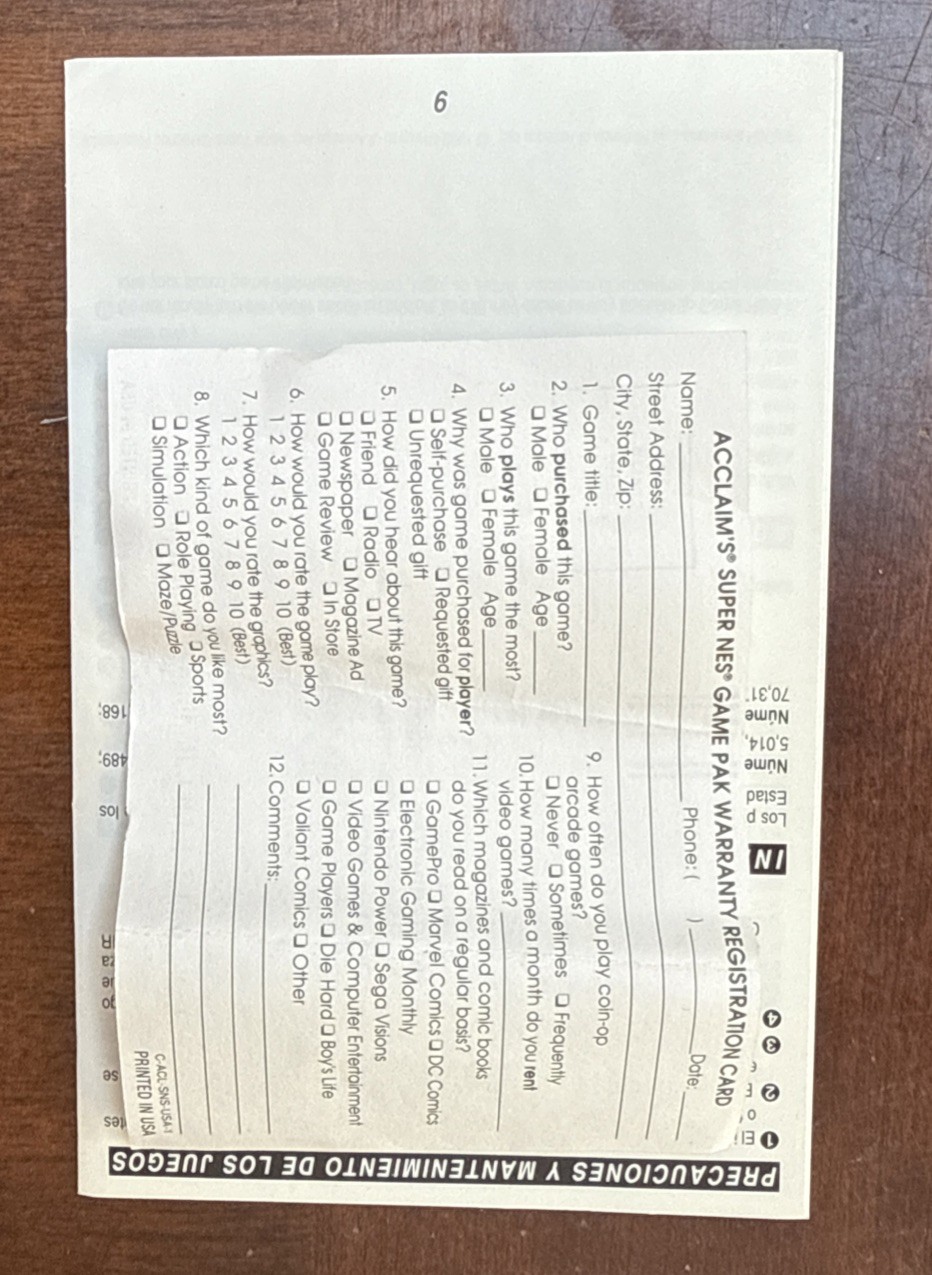 ACCLAIM'S® SUPER NES® GAME PAK WARRANTY REGISTRATION CARD
Name: Phone: ( ) Date:
Street Address:
City, State, Zip:
1. Game title:
2. Who purchased this game?
❑ Male ❑ Female Age
3. Who plays this game the most?
❑ Male ❑ Female Age
4. Why was game purchased for player?
❑ Self-purchase ❑ Requested gift
❑ Unrequested gift
5. How did you hear about this game?
❑ Friend ❑ Radio ❑ TV
❑ Newspaper ❑ Magazine Ad
❑ Game Review ❑ In Store
6. How would you rate the game play?
1 2 3 4 5 6 7 8 9 10 (Best)
7. How would you rate the graphics?
1 2 3 4 5 6 7 8 9 10 (Best)
8. Which kind of game do you like most?
❑ Action ❑ Role Playing ❑ Sports
❑ Simulation ❑ Maze/Puzzle
9. How often do you play coin-op
arcade games?
❑ Never ❑ Sometimes ❑ Frequently
10. How many times a month do you rent
video games?
11. Which magazines and comic books
do you read on a regular basis?
❑ GamePro ❑ Marvel Comics ❑ DC Comics
❑ Electronic Gaming Monthly
❑ Nintendo Power ❑ Sega Visions
❑ Video Games & Computer Entertainment
❑ Game Players ❑ Die Hard ❑ Boy's Life
❑ Valiant Comics ❑ Other
12. Comments:
C-ACL-SNS-USA-1
PRINTED IN USA
PRECAUCIONES Y MANTENIMIENTO DE LOS JUEGOS
1
2
3
4
IN
Los p
Estad
Núme
5,014,
Núme
70,31
los
489;
168;
se
9